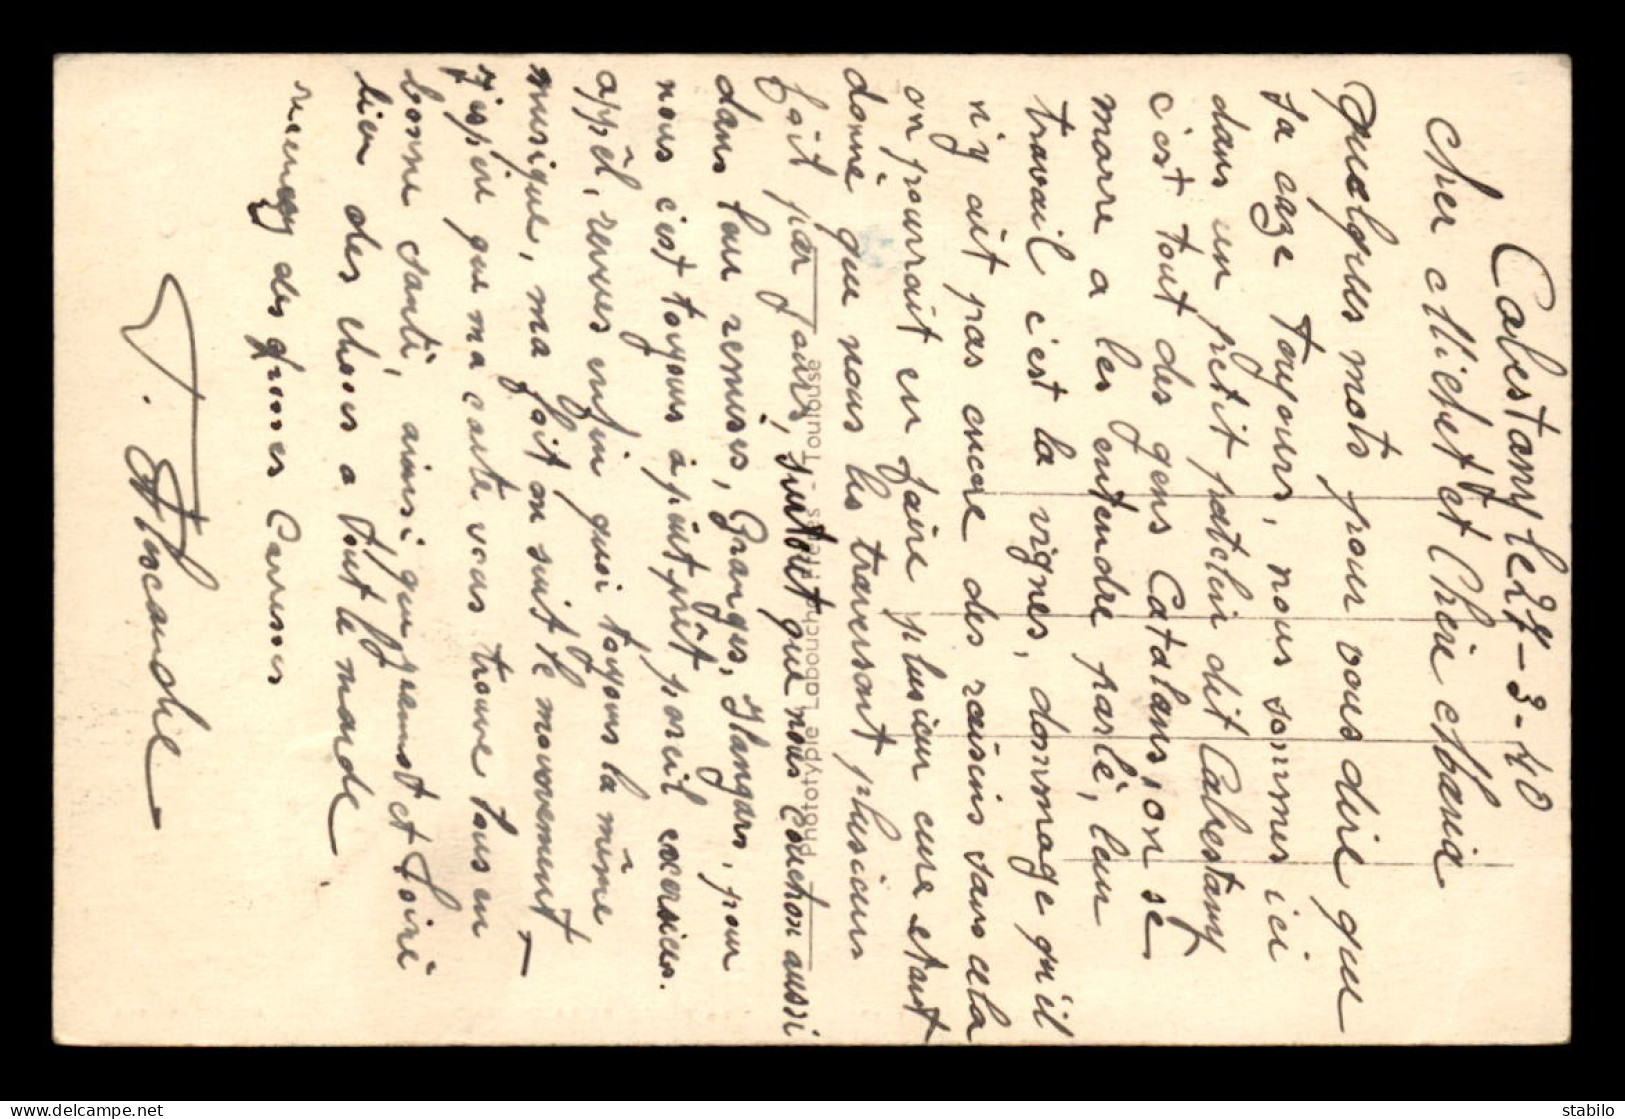 Cabestany le 27-3-40
Cher Michel et Chère Maria
Quelques mots pour vous dire que
sa gaze toujours, nous sommes ici
dans un petit patelin dit Cabestany
c'est tout des gens Catalans, on se
marre a les entendre parlè, leur
travail c'est la vignes, dommage qu'il
n'y ait pas encore des raisins sans cela
on pourrait en faire plusieur cure etant
donnè que nous les traversont plusieurs
fois par jours, surtout que nous couchon aussi
dans leur remises, Granges, Hangars, pour
nous c'est toujours a peut prêt pareil exersices.
appêl, revues enfin quoi toujours la même
musique, ma foit on suit le mouvement,
J'espère que ma carte vous trouve tous en
bonne santé, ainsi que et
bien des choses a tout le monde
recevez des grosses Caresses
Phototypie Labouche Frères - Toulouse
stabilo